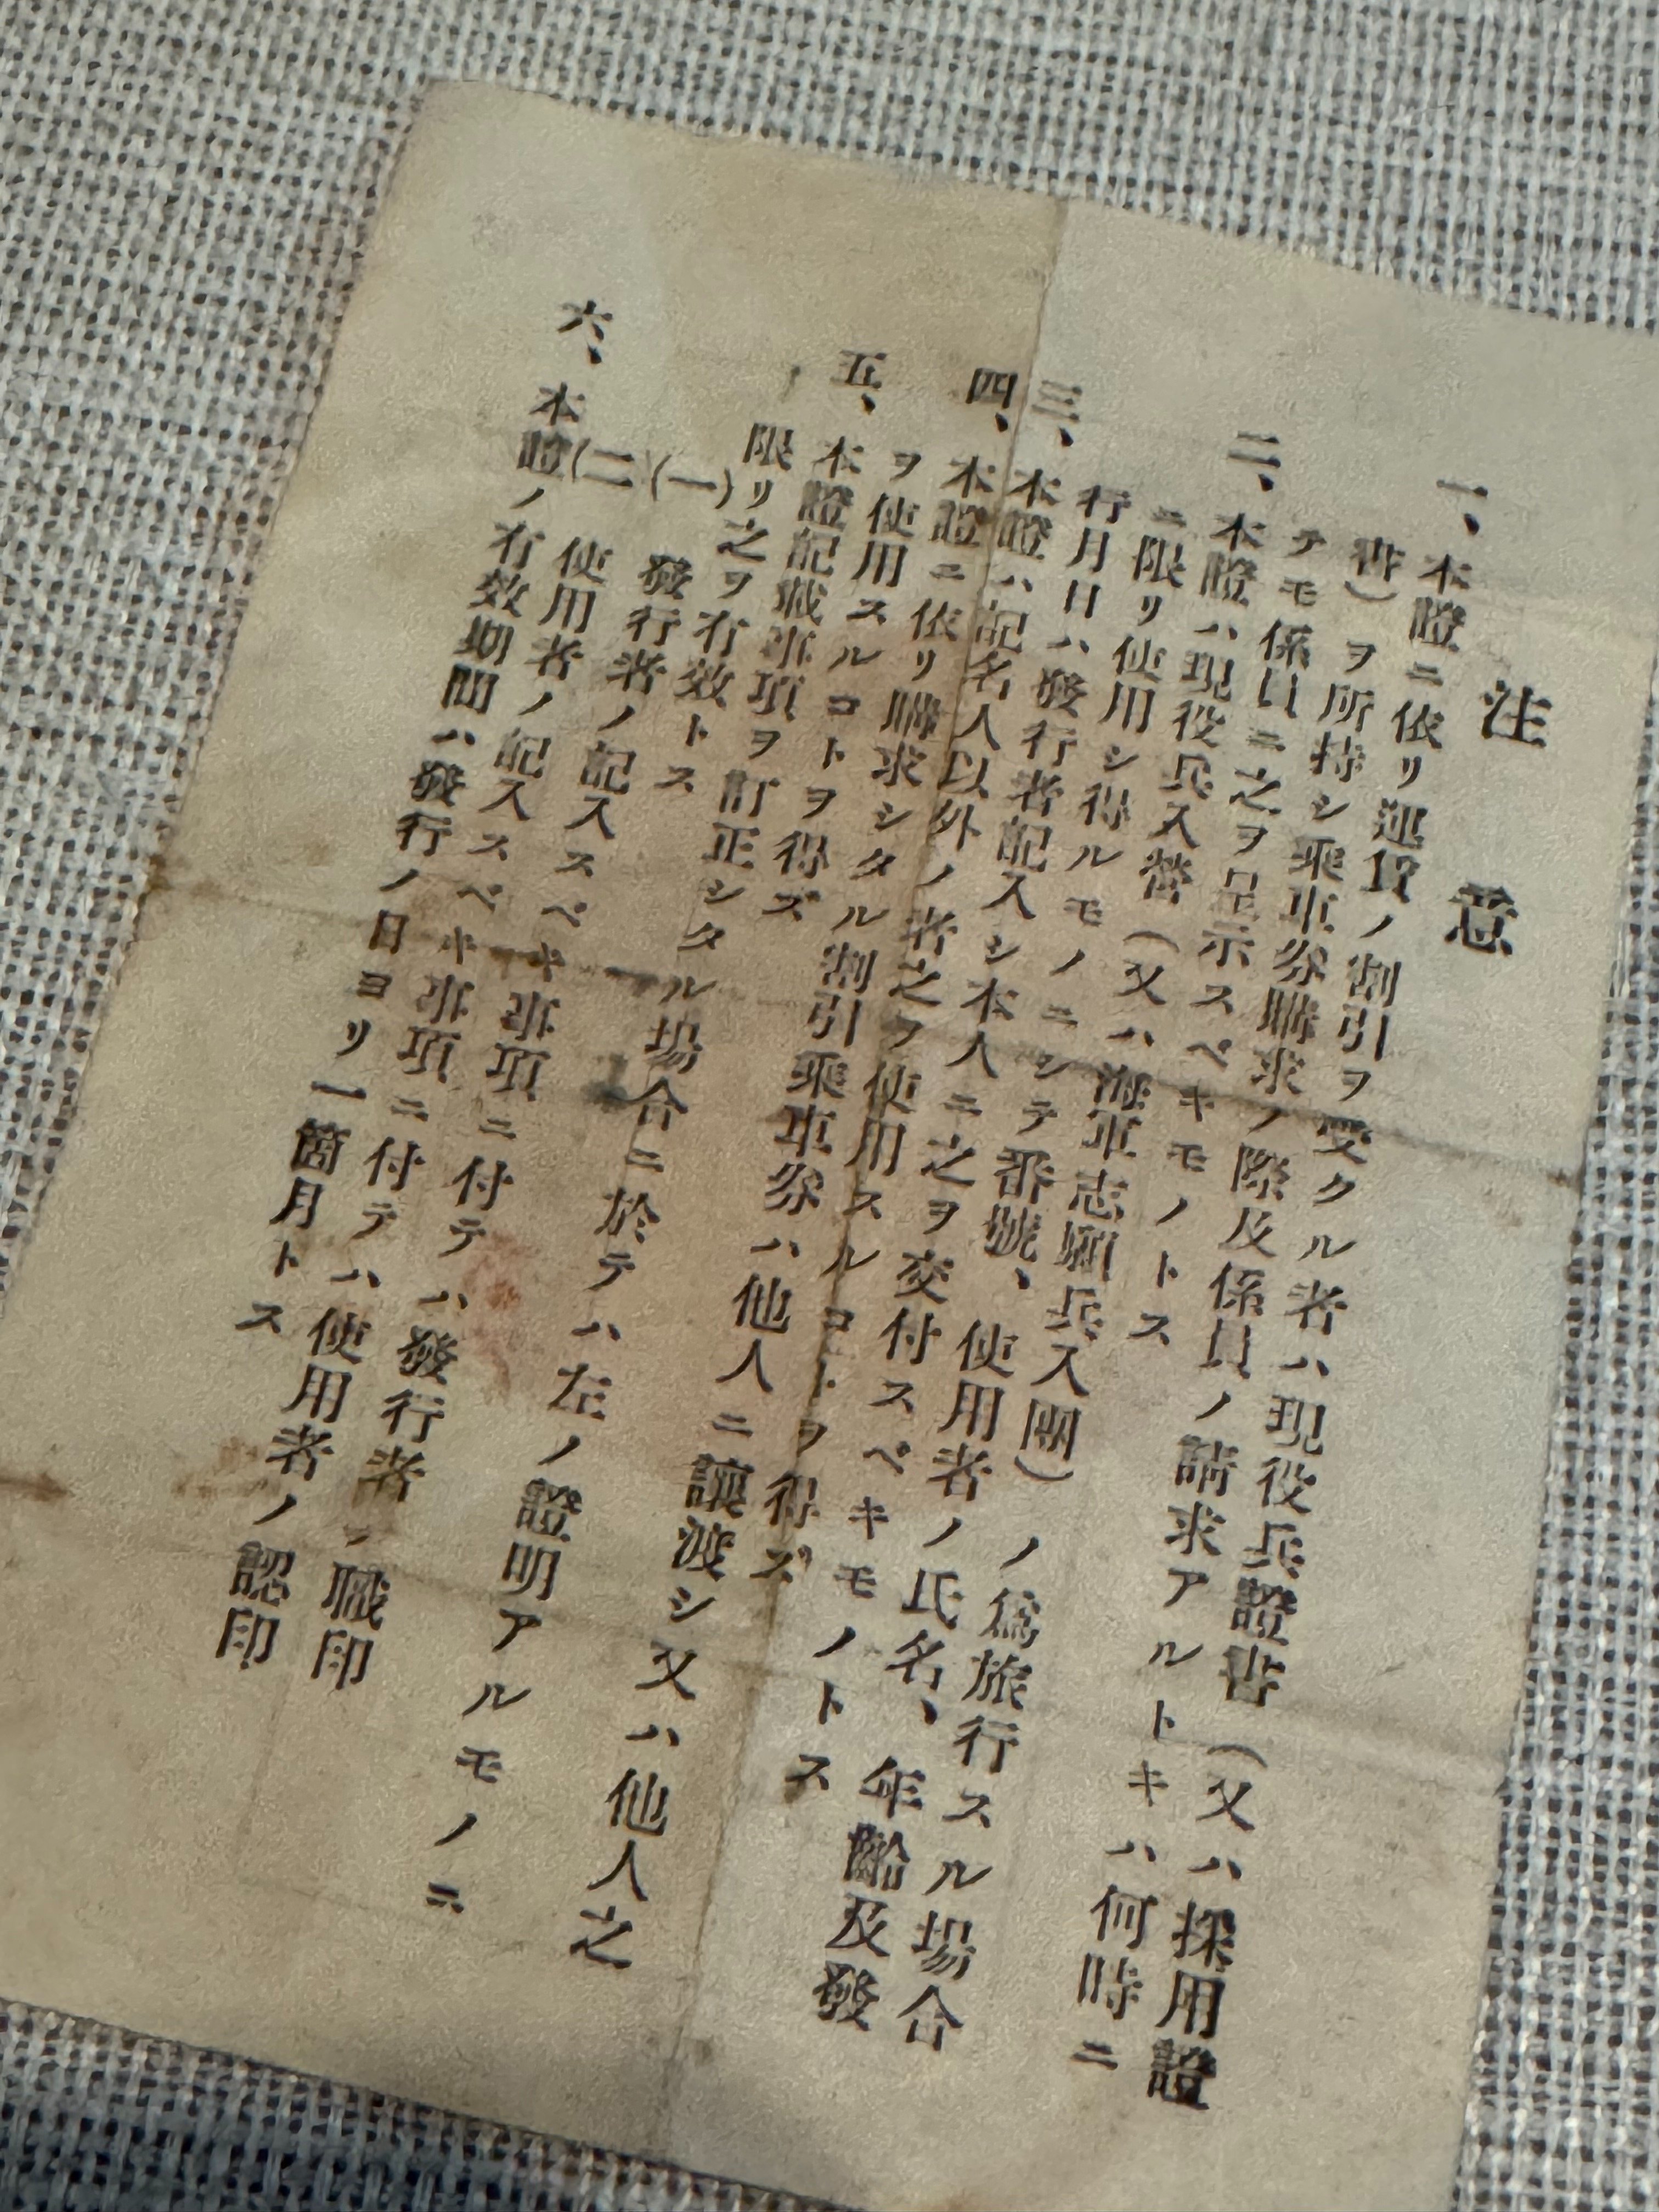 注意
一、本證ニ依リ運賃ノ割引ヲ受クル者ハ現役兵證書（又ハ採用證
書）ヲ所持シ乘車券購求ノ際及係員ノ請求アルトキハ何時ニ
テモ係員ニ之ヲ呈示スベキモノトス
二、本證ハ現役兵入營（又ハ海軍志願兵入團）ノ爲旅行スル場合
ニ限リ使用シ得ルモノニシテ番號、使用者ノ氏名、年齡及發
行月日ハ發行者記入シ本人ニ之ヲ交付スベキモノトス
三、本證ハ記名人以外ノ者之ヲ使用スルコトヲ得ズ
四、本證ニ依リ購求シタル割引乘車券ハ他人ニ讓渡シ又ハ他人之
ヲ使用スルコトヲ得ズ
五、本證記載事項ヲ訂正シタル場合ニ於テハ左ノ證明アルモノニ
限リ之ヲ有效トス
(一)發行者ノ記入スベキ事項ニ付テハ發行者ノ職印
(二)使用者ノ記入スベキ事項ニ付テハ使用者ノ認印
六、本證ノ有效期間ハ發行ノ日ヨリ一箇月トス